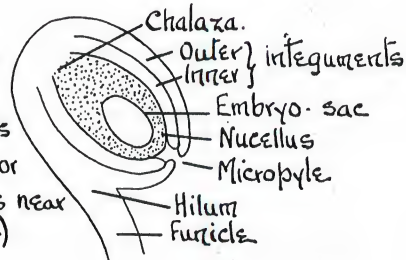 Chalaza.
Outer } integuments
Inner }
Embryo-sac
Nucellus
Micropyle
Hilum
Funicle
s
or
s near
)